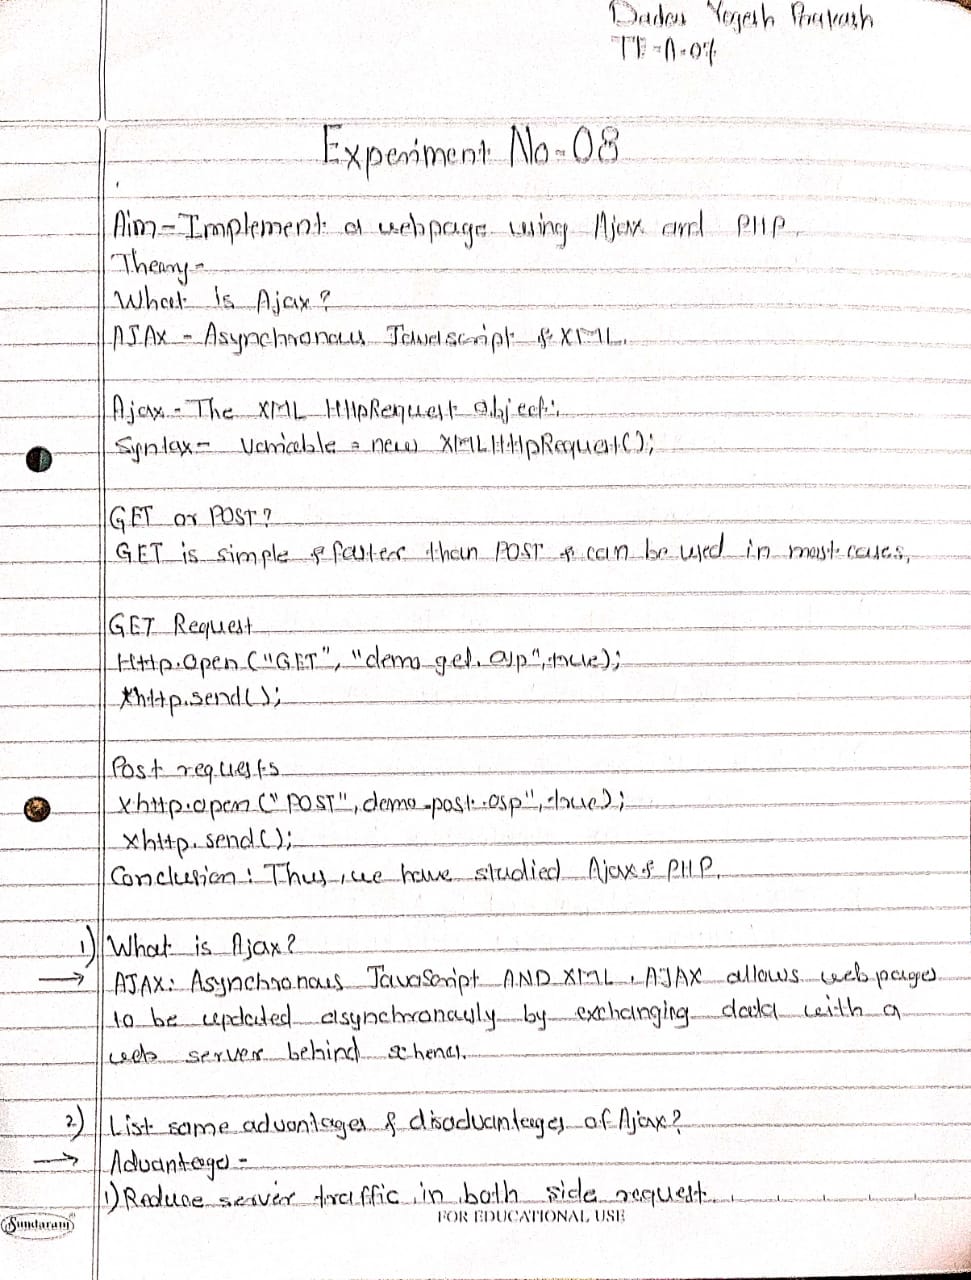 Yogesh Prakash
TE-A-07
Experiment No-08
Aim-Implement a webpage using Ajax and PHP.
Theory-
What is Ajax?
AJAX - Asynchronous Javascript & XML.
Ajax - The XML HttpRequest object:
Syntax- Variable = new XMLHttpRequest();
GET or POST?
GET is simple & faster than POST & can be used in most cases,
GET Request
Http.open ("GET", "demo_get.asp", true);
xhttp.send();
Post requests
xhttp.open ("POST", demo-post.asp", true);
xhttp.send();
Conclusion: Thus, we have studied Ajax & PHP.
1) What is Ajax?
→ AJAX: Asynchronous JavaScript AND XML. AJAX allows web pages
to be updated asynchronously by exchanging data with a
web server behind schenes.
2) List some advantages & disadvantages of Ajax?
→ Advantage -
1) Reduce server traffic in both side request.
Sundaram
FOR EDUCATIONAL USE